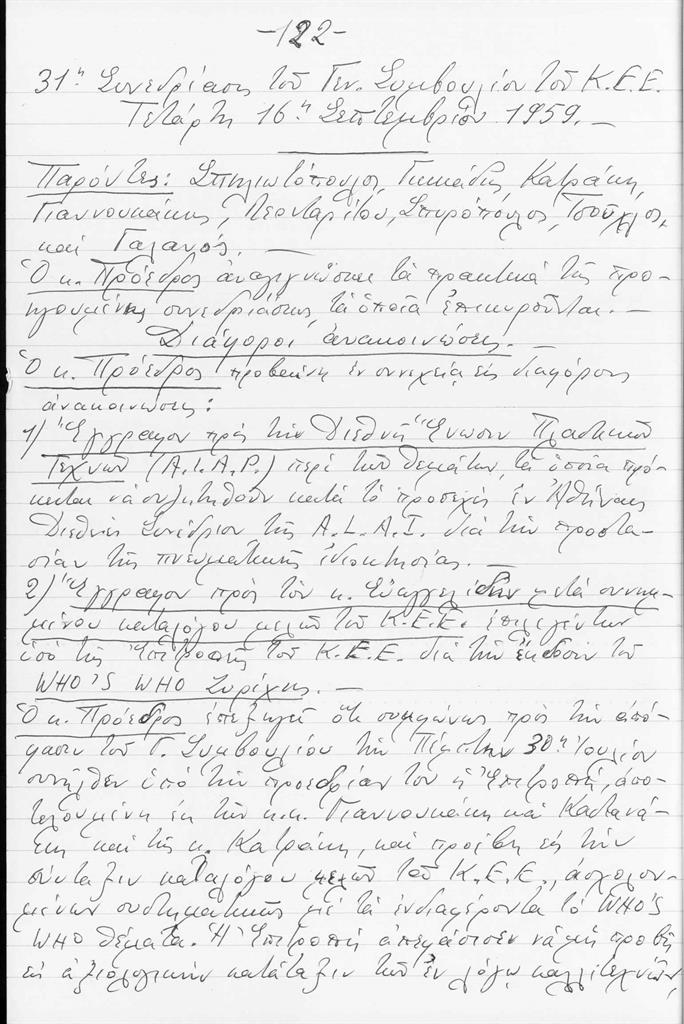 -122-
31η Συνεδρίασις τοῦ Γεν. Συμβουλίου τοῦ Κ.Ε.Ε.
Τετάρτη 16η Σεπτεμβρίου 1959. —
Παρόντες: Σπηλιωτόπουλος, Γκικάδης, Κατράκη,
Γιαννουκάκης, Πενταρίτου, Σπυρόπουλος, Τσοῦχλος,
καί Γαλανός. —
Ὁ κ. Πρόεδρος ἀναγιγνώσκει τά πρακτικά τῆς προ-
ηγουμένης συνεδριάσεως, τά ὁποῖα ἐπικυροῦνται. —
Διάφοροι ἀνακοινώσεις. —
Ὁ κ. Πρόεδρος προβαίνει ἐν συνεχείᾳ εἰς διαφόρους
ἀνακοινώσεις:
1) Ἔγγραφον πρός τήν Διεθνῆ Ἕνωσιν Πλαστικῶν
Τεχνῶν (A.I.A.P.) περί τῶν θεμάτων, τά ὁποῖα πρό-
κειται νά συζητηθοῦν κατά τό προσεχές ἐν Ἀθήναις
Διεθνές Συνέδριον τῆς A.L.A.I. διά τήν προστα-
σίαν τῆς πνευματικῆς ἰδιοκτησίας. —
2) Ἔγγραφον πρός τόν κ. Εὐαγγελίδην μετά συνημ-
μένου καταλόγου μελῶν τοῦ Κ.Ε.Ε. ἐπιλεγέντων
ὑπό τῆς Ἐπιτροπῆς τοῦ Κ.Ε.Ε. διά τήν ἔκδοσιν τοῦ
WHO'S WHO Ζυρίχης. —
Ὁ κ. Πρόεδρος ἐπεξηγεῖ ὅτι συμφώνως πρός τήν ἀπό-
φασιν τοῦ Γ. Συμβουλίου τήν Πέμπτην 30ην Ἰουλίου
συνῆλθεν ὑπό τήν προεδρίαν του ἡ Ἐπιτροπή, ἀπο-
τελουμένη ἐκ τῶν κ.κ. Γιαννουκάκη καί Καστανά-
κη καί τῆς κ. Κατράκη, καί προέβη εἰς τήν
σύνταξιν καταλόγου μελῶν τοῦ Κ.Ε.Ε., ἀσχολου-
μένων συστηματικῶς μέ τά ἐνδιαφέροντα τό WHO'S
WHO θέματα. Ἡ Ἐπιτροπή ἀπεφάσισεν νά μή προβῇ
εἰς ἀξιολογικήν κατάταξιν τῶν ἐν λόγῳ καλλιτεχνῶν,